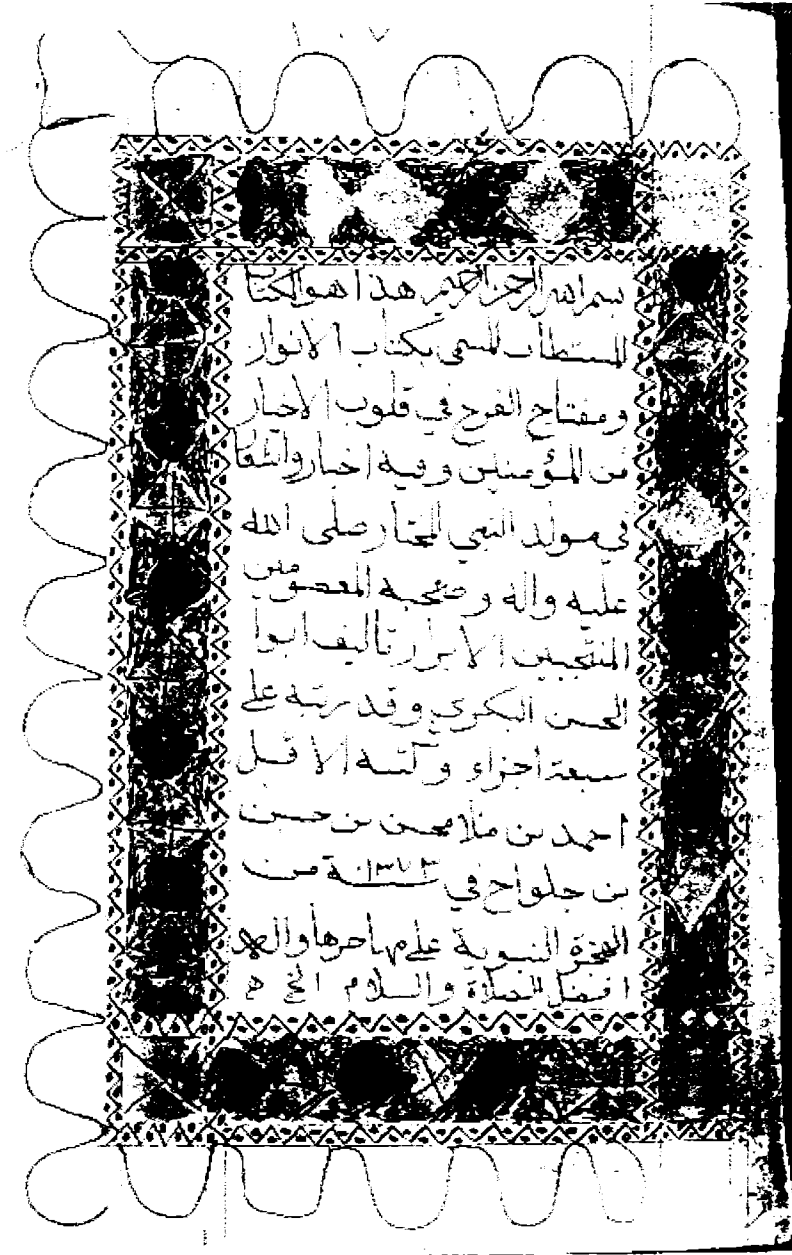 بسم الله الرحمن الرحيم هذا هو الكتاب
المستطاب المسمى بكتاب الانوار
ومفتاح الفرح في قلوب الاخيار
من المؤمنين وفيه اخبار وانتقا
في مولد النبي المختار صلى الله
عليه واله وصحبه المعصومين
المنتجبين الابرار تاليف ابوا
الحسن البكري وقد رتبه على
سبعة اجزاء وكتبه الاقل
احمد بن ملا محسن بن حسن
بن جلواح في سنة ١٣٧٣ من
الهجرة النبوية على مهاجرها واله
افضل الصلاة والسلام